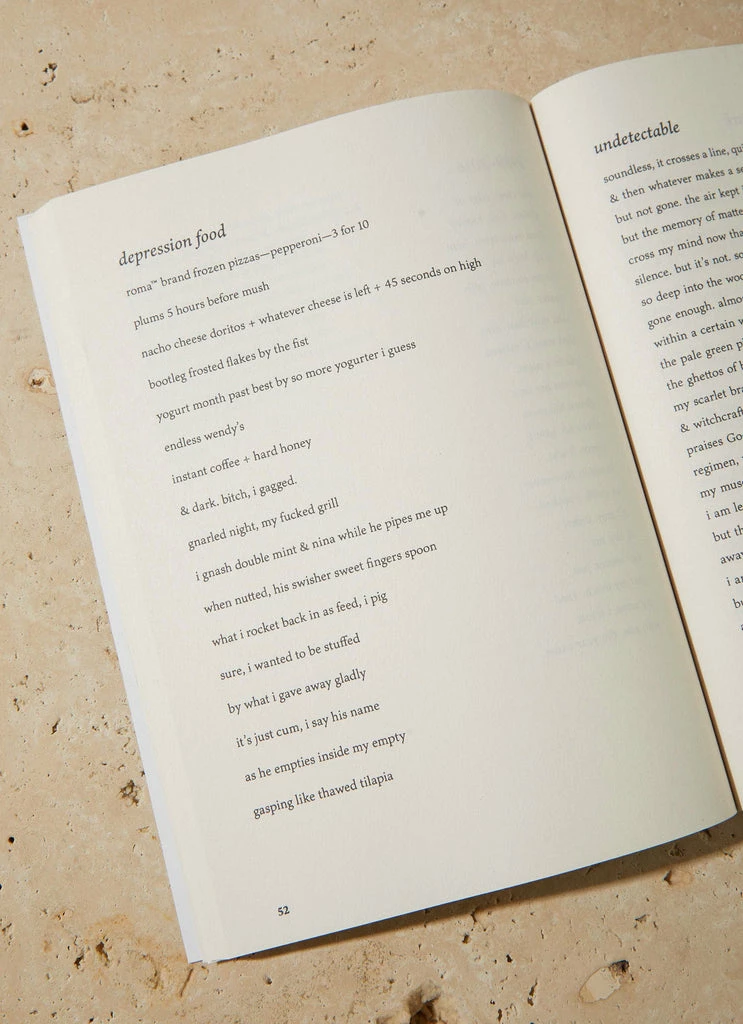 depression food
roma™ brand frozen pizzas—pepperoni—3 for 10
plums 5 hours before mush
nacho cheese doritos + whatever cheese is left + 45 seconds on high
bootleg frosted flakes by the fist
yogurt month past best by so more yogurter i guess
endless wendy's
instant coffee + hard honey
& dark. bitch, i gagged.
gnarled night, my fucked grill
i gnash double mint & nina while he pipes me up
when nutted, his swisher sweet fingers spoon
what i rocket back in as feed, i pig
sure, i wanted to be stuffed
by what i gave away gladly
it's just cum, i say his name
as he empties inside my empty
gasping like thawed tilapia
52
undetectable
soundless, it crosses a line,
& then whatever makes a
but not gone. the air kept
but the memory of
cross my mind now
silence. but it's not.
so deep into the
gone enough.
within a certain
the pale green
the ghettos of
my scarlet
&
praises
regimen,
my
i am
but
i